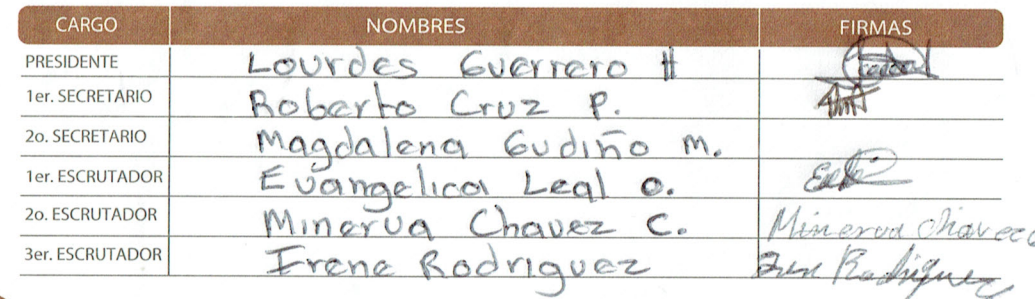 CARGO NOMBRES FIRMAS
PRESIDENTE Lourdes Guerrero H
1er. SECRETARIO Roberto Cruz P.
2o. SECRETARIO Magdalena Gudiño M.
1er. ESCRUTADOR Evangelica Leal O.
2o. ESCRUTADOR Minerva Chavez C. Minerva Chavez C
3er. ESCRUTADOR Irene Rodriguez Rodriguez